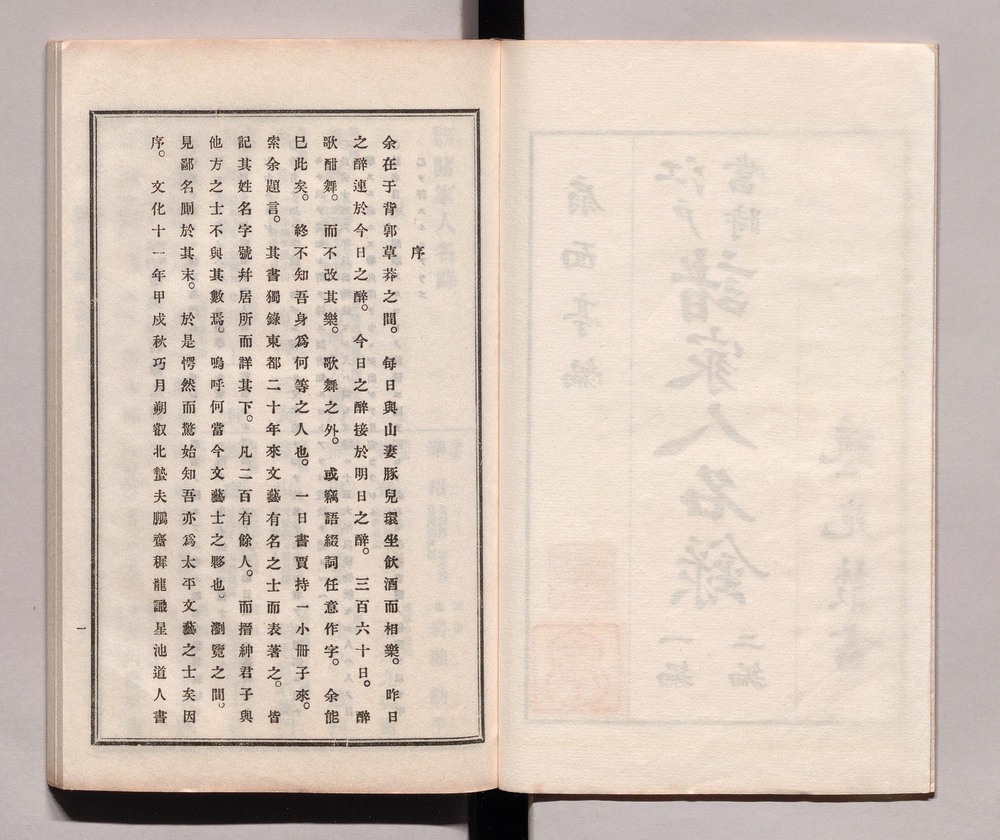 序
余在于背郭草莽之間。每日與山妻豚兒環坐飮酒而相樂。昨日
之醉連於今日之醉。今日之醉接於明日之醉。三百六十日。醉
歌酣舞。而不改其樂。歌舞之外。或竊語綴詞任意作字。余能
巳此矣。終不知吾身爲何等之人也。一日書賈持一小冊子來。
索余題言。其書獨錄東都二十年來文藝有名之士而表著之。皆
記其姓名字號幷居所而詳其下。凡二百有餘人。而搢紳君子與
他方之士不與其數焉。嗚呼何當今文藝士之夥也。瀏覽之間。
見鄙名厠於其末。於是愕然而驚始知吾亦爲太平文藝之士矣因
序。文化十一年甲戍秋巧月朔叡北蟄夫鵬齋穉龍識星池道人書
一
當時
江戶諸家人名錄
二編
一編
扇面亭編